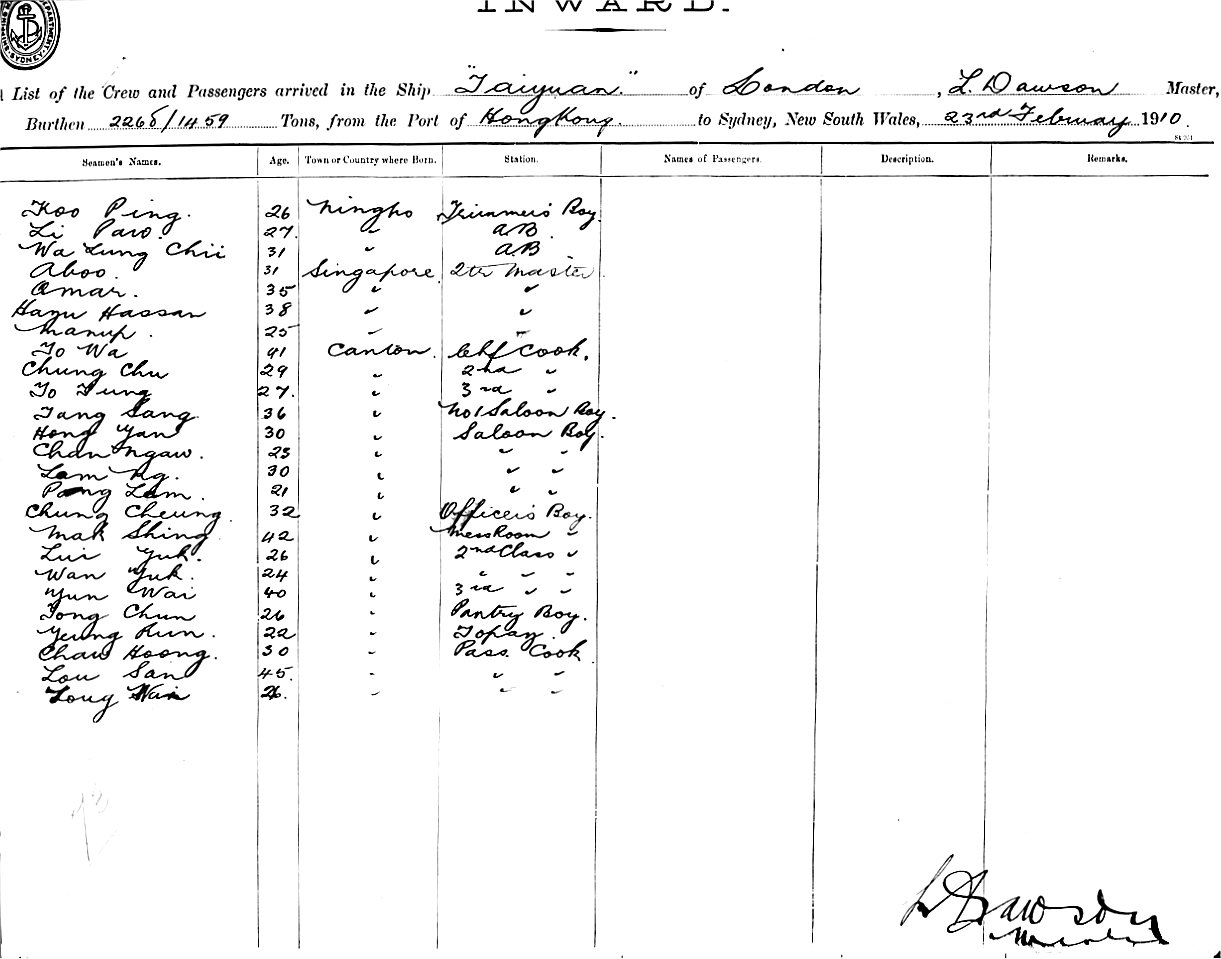 INWARD.
List of the Crew and Passengers arrived in the Ship "Taiyuan." of London, L. Dawson Master,
Burthen 2268/1459 Tons, from the Port of HongKong. to Sydney, New South Wales, 23rd February 1910.
Seamen's Names. Age. Town or Country where Born. Station. Names of Passengers. Description. Remarks.
Koo Ping. 26 Ningpo Trimmers Boy.
Li Paro. 27. " A.B.
Wa Lung Chii 31 " A.B
Aboo. 31 Singapore 2tr Master
Omar. 35 " "
Hagu Hassan 38 " "
Manup. 25 " "
To Wa 41 Canton. Chf Cook.
Chung Chu 29 " 2nd "
To Tung 27. " 3rd "
Tang Sang. 36 " No 1 Saloon Boy.
Hong Yan 30 " Saloon Boy.
Chan Ngaw. 25 " " "
Lam Ng. 30 " " "
Pang Lam. 21 " " "
Chung Cheung. 32 " Officers Boy.
Mak Shing 42 " Mess Room "
Lui Yuk. 26 " 2nd Class "
Wan Yuk. 24 " " " "
Yun Wai 40 " 3rd " "
Tong Chun 26 " Pantry Boy.
Yeung Kun. 22 " Topay.
Chau Hoong. 30 " Pass. Cook
Lou San 45. " " "
Long 26. " " "
L Dawson
Master